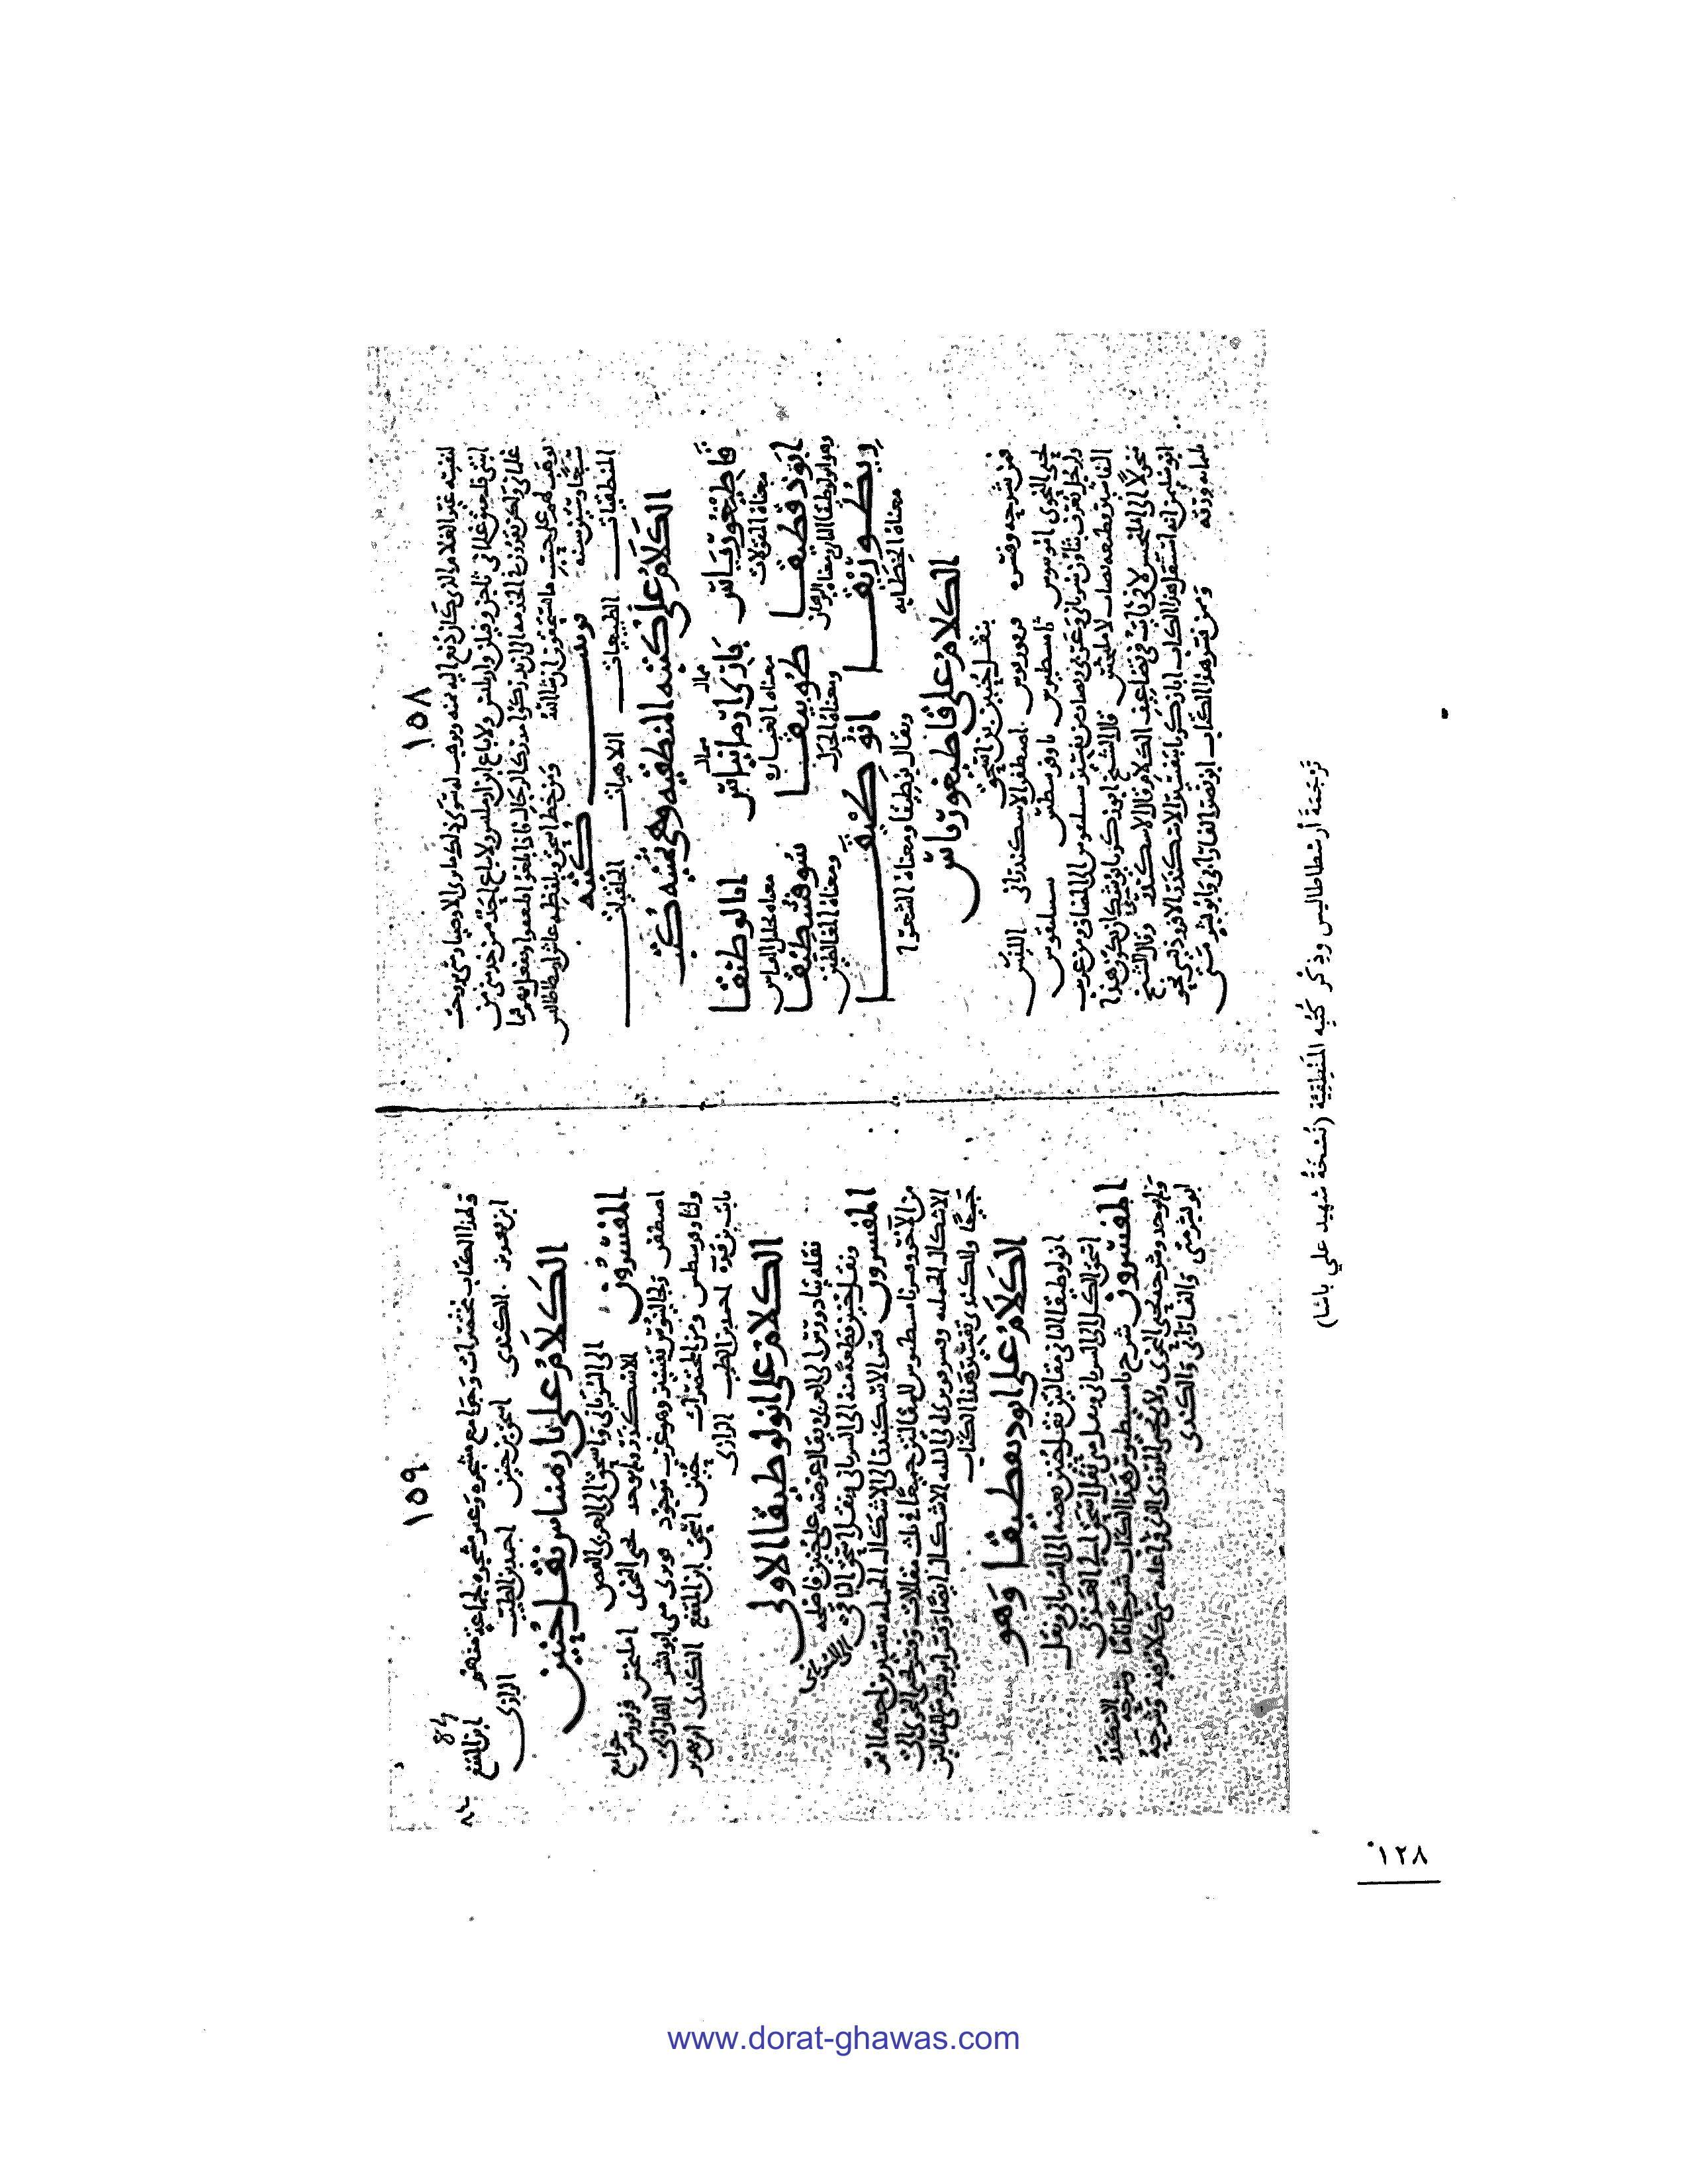 ١٥٨
لنفسه غير الغلام الذى كان دفع اليه ثمنه ويوهب له سوى ذلك ما رى الاوصيا ومتى زوجت
ابنتى فلحسو غلمانى ثاجز وفيلن وارملس ولا يباع ابن اوملس ولا يباع احد ممن خدمنى من
غلمانى ولكن يقرون فى الخدمه الى ان يدركوا مدرك الرجال فاذا بلغوا فليعتقوا ويفعل بهم فيما
يوهب لهم على حسب ما يستحقون ان شا الله
ومن خط اسحق وبلفظه عاش ارسطاطالس
سبعا وستين سنه
ترتيب كتبه
المنطقيات الطبيعيات الالاهيات الخلقيات
الكلام على كتبه المنطقيه وهى ثمنيه كتب
قاطيغورياس
معناه المقولات
بارى ارمانياس
معناه العباره
انالوطيقا
معناه تحليل القياس
ابودقطيقا
وهو انالوطيقا الثانى ومعناه البرهان
طوبيقا
ومعناه الجدل
سوفسطيقا
ومعناه المغالطين
ريطوريقا
معناه الخطابه
ابوطيقا
ويقال بوطيقا ومعناه الشعر
الكلام على قاطيغورياس
بنقل حنين بن اسحق
فمن شرحه وفسره فرفوريوس اصطفن الاسكندرانى اللينس
يحيى النحوى امونيوس ثامسطيوس ثاوفرسطس سنبلقيوس
ولرجل يعرف بثاون سريانى وعربى ويصاب من تفسير سنبلقيوس الى المضاف ومن غريب
التفاسير قطعه تضاف لاملخس قال الشيخ ابو زكريا يوشك ان يكون هذا
منحولا الى املخس لانى رايت فى تضاعيف الكلام قال الاسكندر وقال الشيخ
ابو سليمن انه استنقل هذا الكتاب ابا زكريا بتفسير الاسكندر الافروديسى نحو
ثلثمائه ورقه ومن فسر هذا الكتاب ابو نصر الفارابى وابو بشر متى
١٥٩
84
ولهذا الكتاب مختصرات وجوامع مشجره وغير مشجره لجماعه منهم ابن المقفع
ابن بهريز الكندى اسحق بن حنين احمد بن الطيب الرازى
الكلام على بارى ارمنياس نقل حنين
الى السريانى واسحق الى العربى الفص
المفسرون
الاسكندر ولا يوجد يحيى النحوى املخس فرفوريوس جوامع
اصطفن ولجالينوس تفسير وهو غريب غير موجود قويرى متى ابو بشر الفارابى
ولثاوفرسطس ومن المختصرات حنين اسحق ابن المقفع الكندى ابن بهريز
ثابت بن قره احمد بن الطيب الرازى
الكلام على انالوطيقا الاولى
نقله ثيادورس الى العربى ويقال عرضه على حنين فاصلحه
ونقل حنين قطعه منه الى السريانى ونقل اسحق الباقى الى السريانى
المفسرون فسر الاسكندر الى الاشكال الحمليه تفسيرين احدهما اتم
من الاخر وفسر ثامسطيوس المقالتين جميعا فى ثلث مقالات وفسر يحيى النحوى الى
الاشكال الحمليه وفسر قويرى الى الثلثه الاشكال ايضا وفسر ابو بشر متى المقالتين
جميعا وللكندى تفسير هذا الكتاب
الكلام على ابودقطيقا وهو
انالوطيقا الثانى مقالتين نقل حنين بعضه الى السريانى ونقل
اسحق الكل الى السريانى ونقل متى نقل اسحق الى العربى
المفسرون شرح ثامسطيوس هذا الكتاب شرحا تاما وشرحه الاسكندر
ولم يوجد وشرحه يحيى النحوى ولابى يحيى المروزى الذى قرا عليه متى كلام فيه وشرحه
ابو بشر متى والفارابى والكندى
تَرْجَمَةُ أرسْطاطاليس وذِكْرُ كُتُبِه المَنْطِقِيَّة (نُسْخَةُ شهيد علي باشا)
١٢٨
www.dorat-ghawas.com